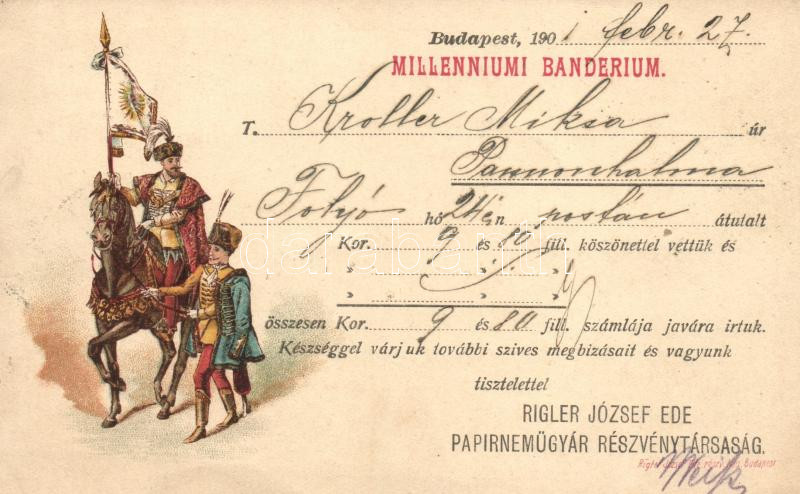 Budapest, 1901 febr. 27.
MILLENNIUMI BANDERIUM.
T. Kroller Miksa úr
Pannonhalma
Folyó hó 24én postán átutalt
Kor. 9 és 80 fill. köszönettel vettük és
" " "
" " "
összesen Kor. 9 és 80 fill. számlája javára irtuk.
Készséggel várjuk további szives megbizásait és vagyunk
tisztelettel
RIGLER JÓZSEF EDE
PAPIRNEMŰGYÁR RÉSZVÉNYTÁRSASÁG.
Rigler József Ede Budapest
darabanth